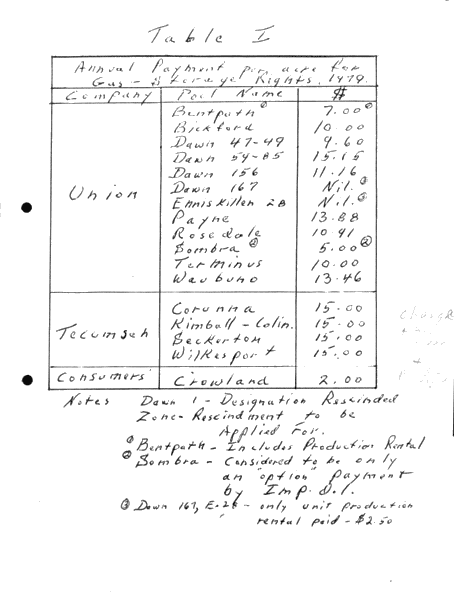 Table I
Annual Payment per acre for
Gas - Storage Rights, 1979.
Company Pool Name $
Bentpath ① 7.00 ①
Bickford 10.00
Dawn 47-49 9.60
Dawn 59-85 15.15
Dawn 156 11.16
Dawn 167 Nil. ③
Union Enniskillen 28 Nil. ③
Payne 13.88
Rosedale 10.41
Sombra ② 5.00 ②
Terminus 10.00
Waubuno 13.46
Corunna 15.00
Tecumseh Kimball - Colin. 15.00
Seckerton 15.00
Wilkesport 15.00
Consumers' Crowland 2.00
Notes Dawn 1 - Designation Rescinded
Zone - Rescindment to be
Applied For.
① Bentpath - Includes Production Rental
② Sombra - Considered to be only
an "option" payment
by Imp. O.L.
③ Dawn 167, E-28 - only unit production
rental paid - $2.50